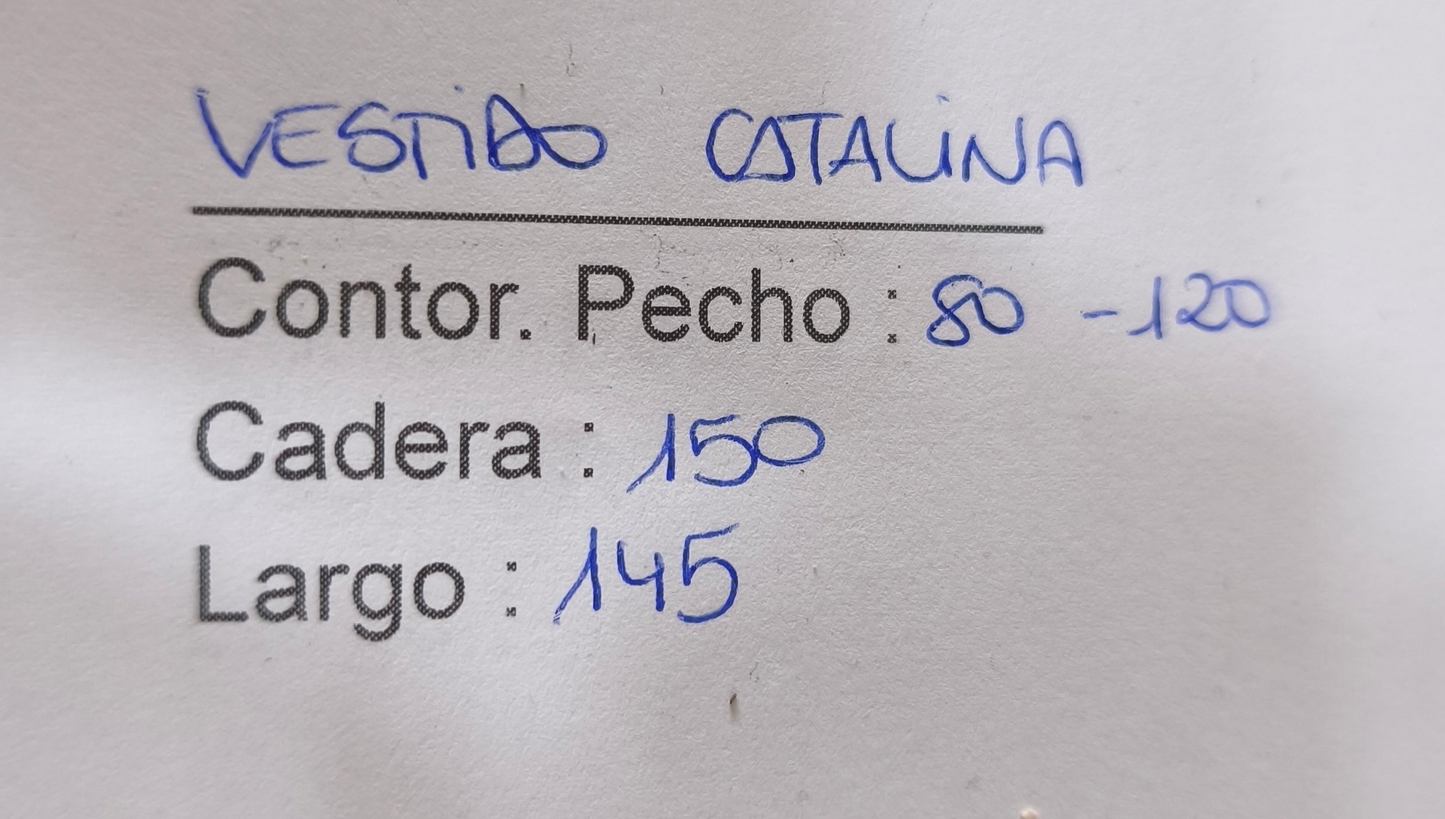 VESTIDO CATALINA
Contor. Pecho : 80 - 120
Cadera : 150
Largo : 145